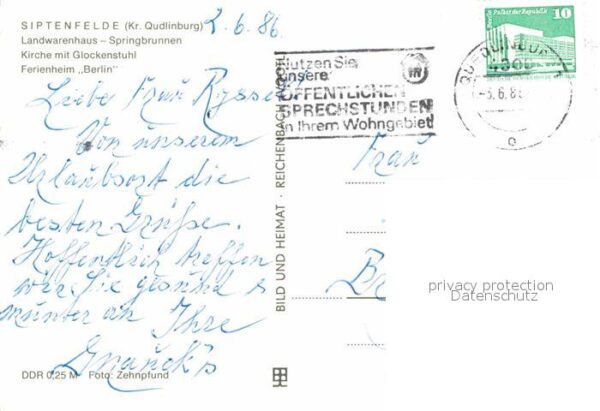 SIPTENFELDE (Kr. Qudlinburg)
Landwarenhaus – Springbrunnen
Kirche mit Glockenstuhl
Ferienheim „Berlin"
2.6.86
Liebe Frau Rysse
Von unserem
Urlaubsort die
besten Grüße.
Hoffentlich treffen
wir Sie gesund &
munter an Ihre
DDR 0,25 M Foto: Zehnpfund
BILD UND HEIMAT · REICHENBACH
Nutzen Sie
unsere
ÖFFENTLICHEN
SPRECHSTUNDEN
in Ihrem Wohngebiet
Palast der Republik
10
4300
Frau
privacy protection
Datenschutz